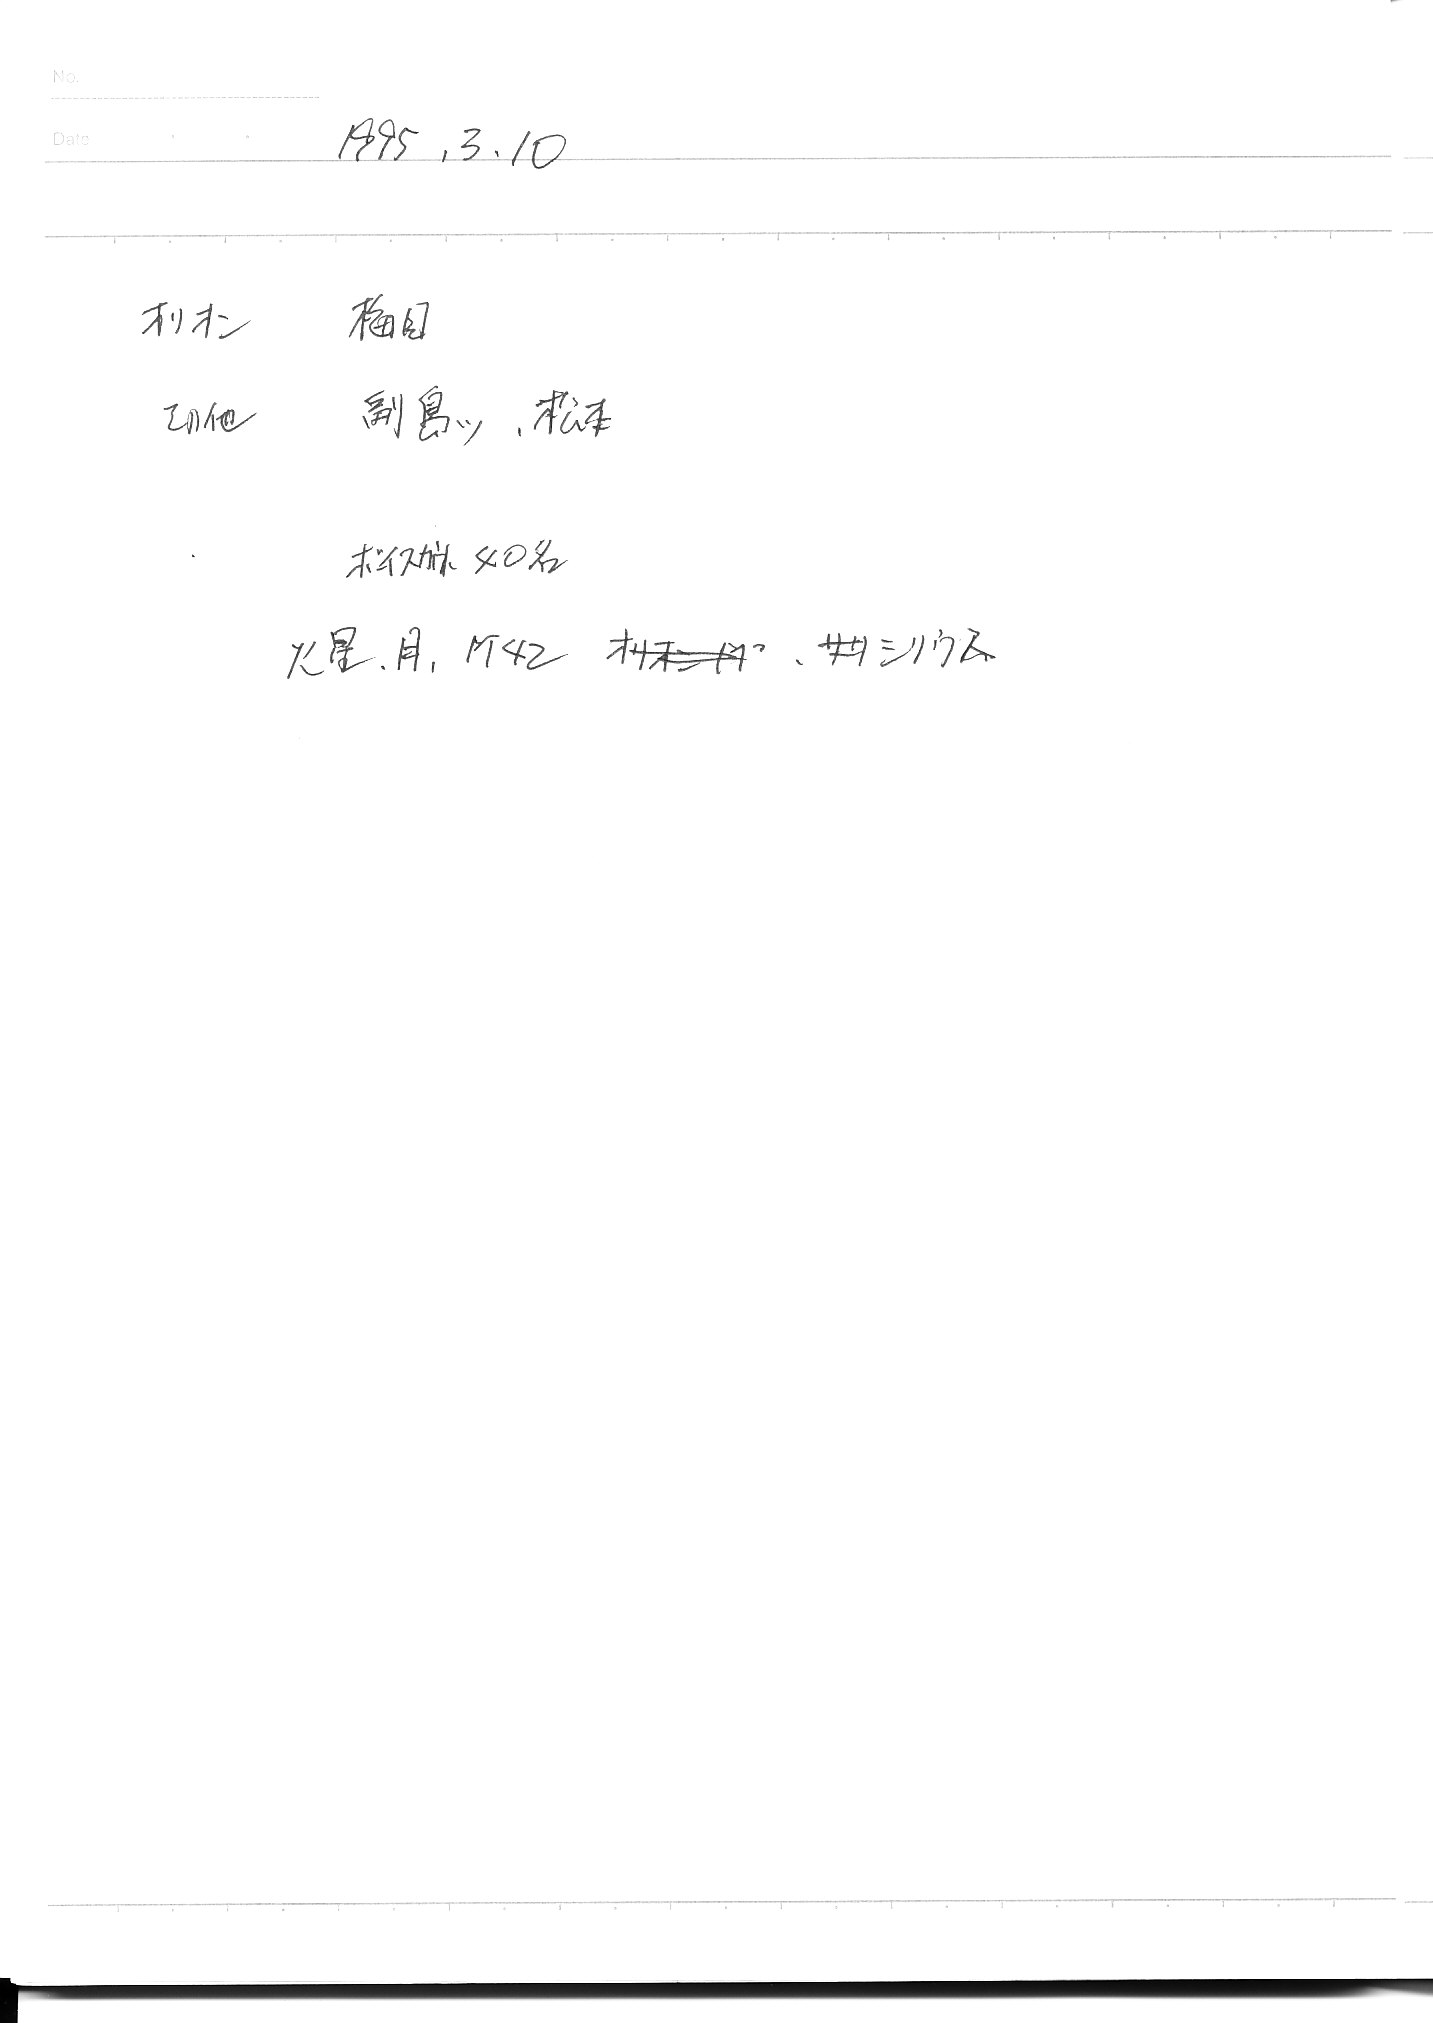 No.
Date
1995.3.10
オリオン 梅田
その他 副島ッ、松本
ボーイスカウト 40名
火星、月、M42 、シリウス